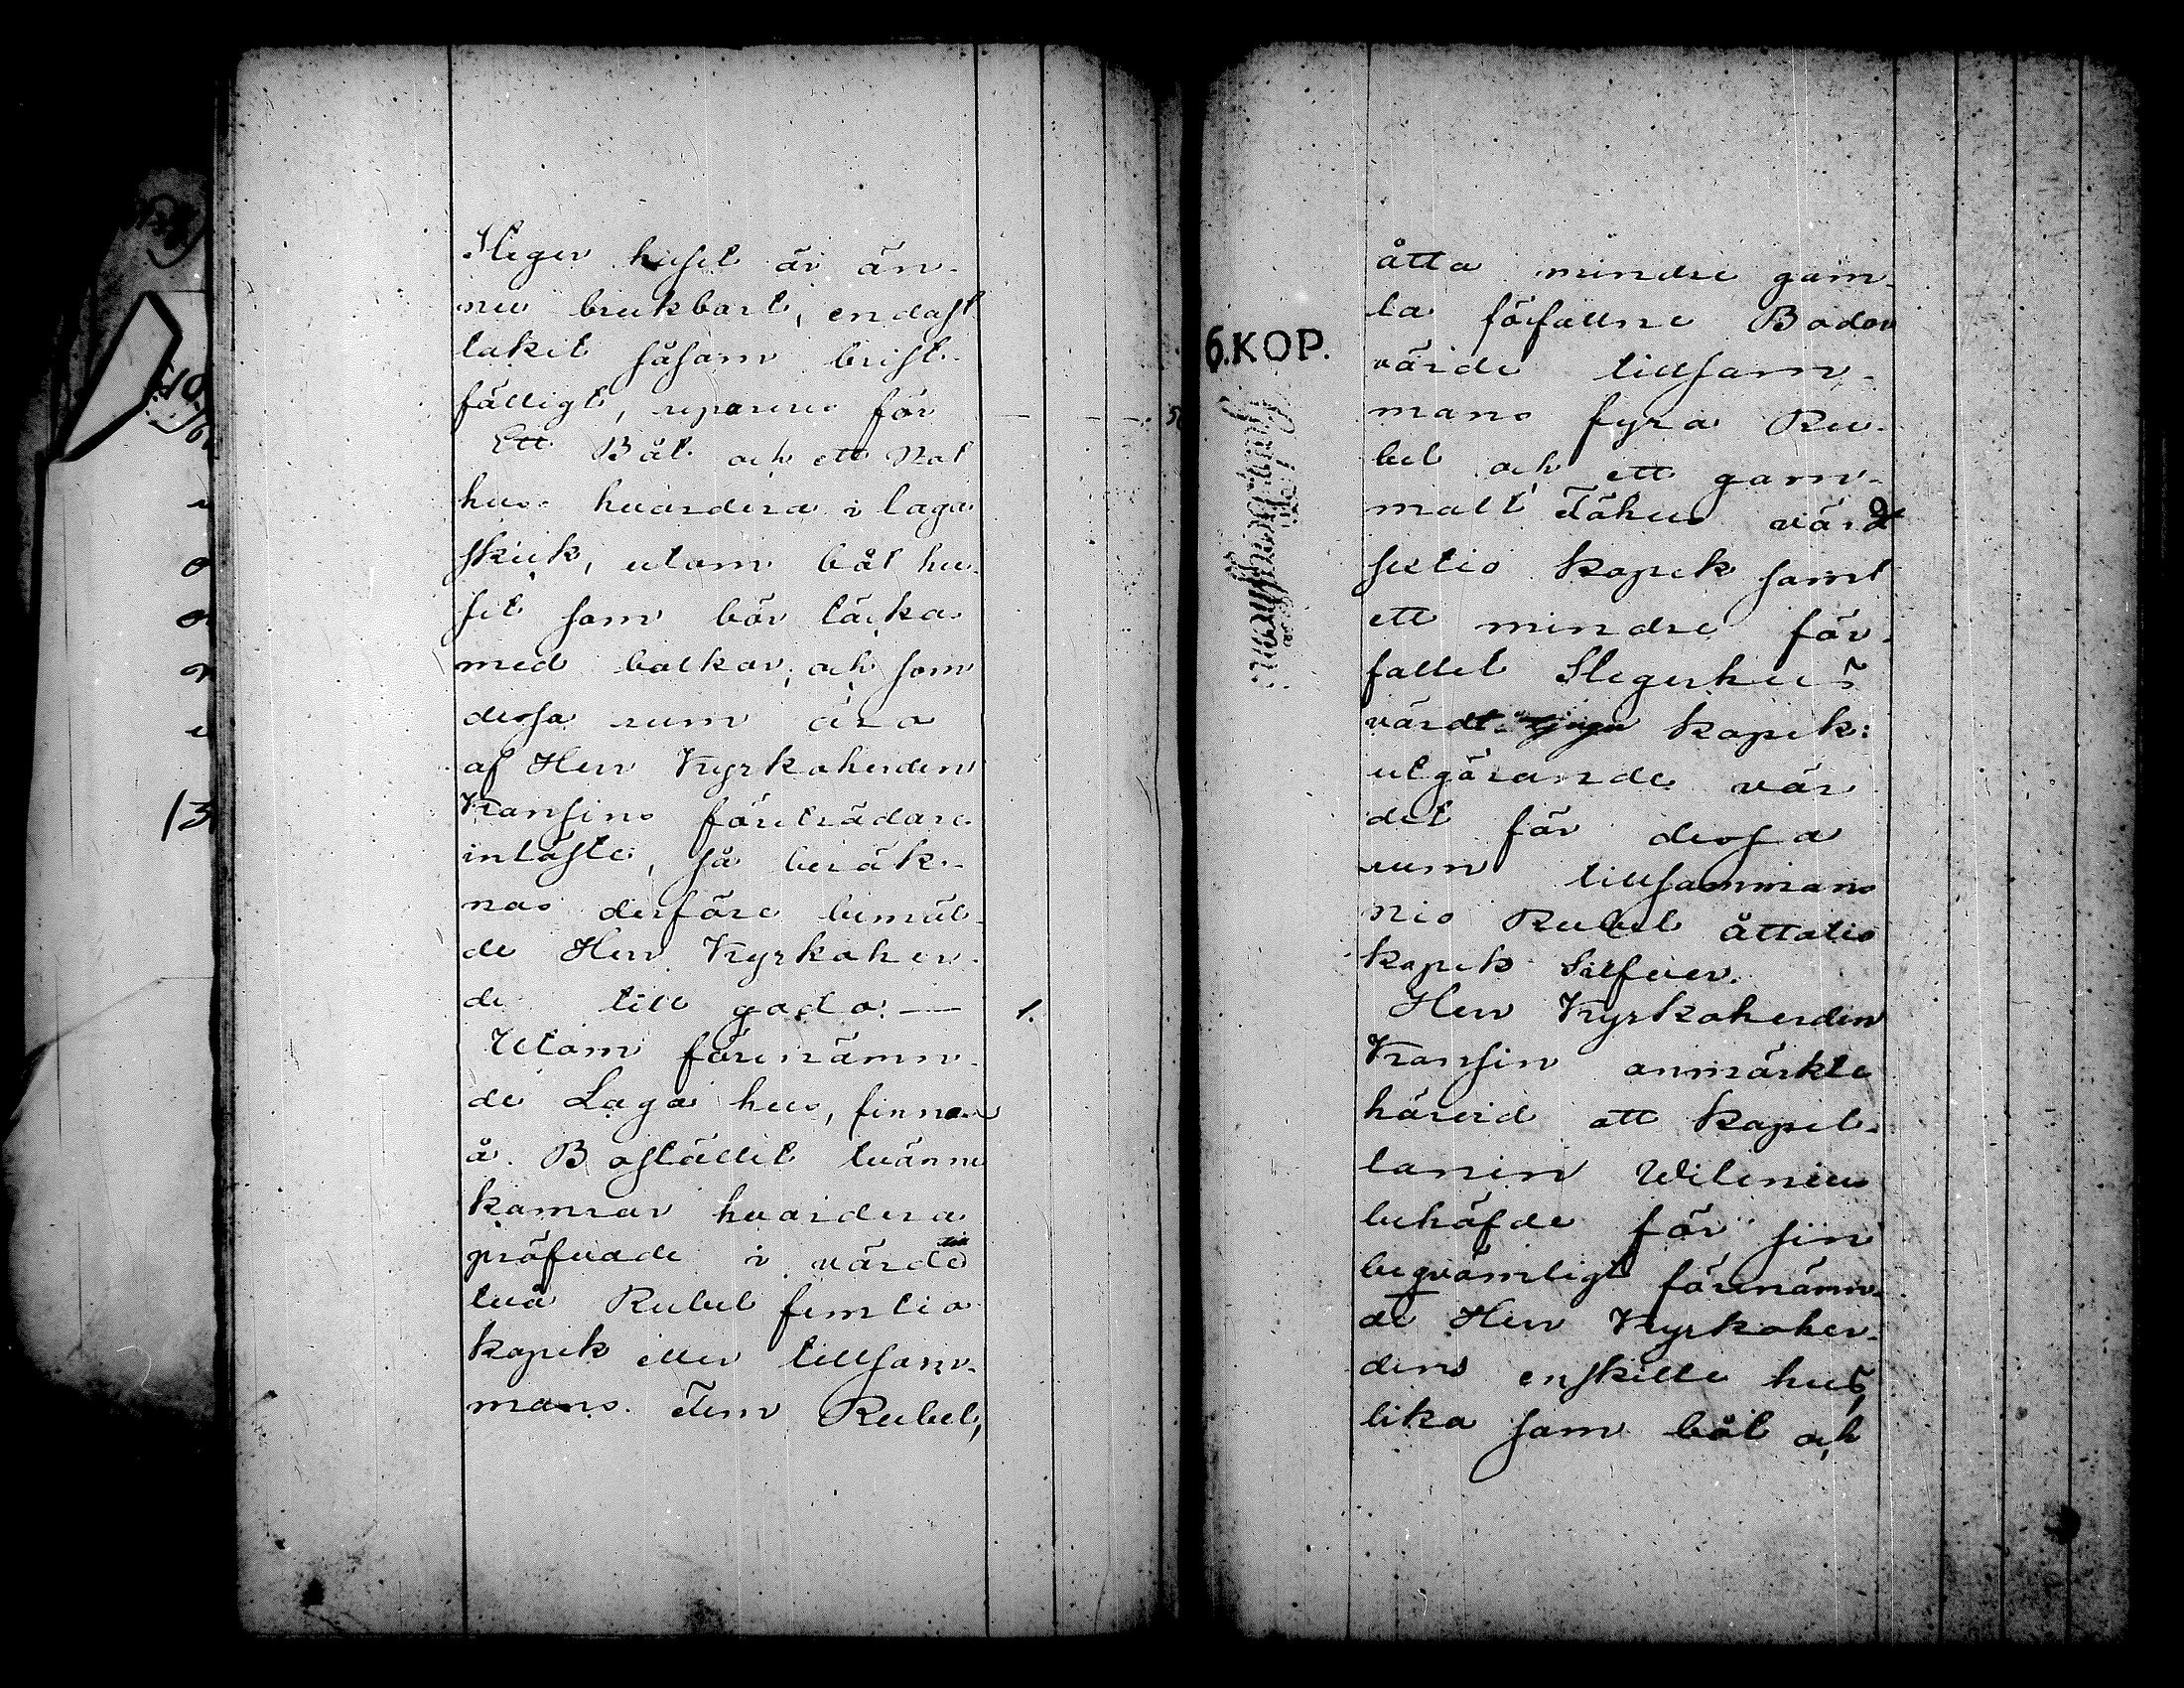 Steger huset är än-
nu brukbart, endast
taket såsom brist-
fälligt, repareres för — — 5
Ett Båt och ett Not
hus hvardera i laga
skick, utom båt hu-
set som bör täckas
med balkar; och som
dessa rum äro
af Herr Kyrkoherden
Kransins företrädare
inlöste, så beräk-
nas derföre bemäl-
de Herr Kyrkoher-
de till godo. — 1.
Utom förenämn-
de Laga hus, finnas
å Bostället tvänne
kamrar hvardera
pröfvade i värde till
två Rubel femtio
kopek eller tillsam-
mans Fem Rubel,
åtta mindre gam-
la förfallne Bodor
värde tillsam-
mans fyra Ru-
bel och ett gam-
malt Fähus värdt
sextio kopek samt
ett mindre för-
fallet Stegerhus
värdt kopek:
utgörande vär
det för dessa
rum tillsammans
nio Rubel åttatio
kopek Silfver.
Herr Kyrkoherden
Kransin anmärkte
härvid att kapel-
lanen Wilenius
behöfde för sin
beqvämlight förenämn-
de Herr Kyrkoher-
dens enskilte hus,
lika som båt och
6.KOP.
13